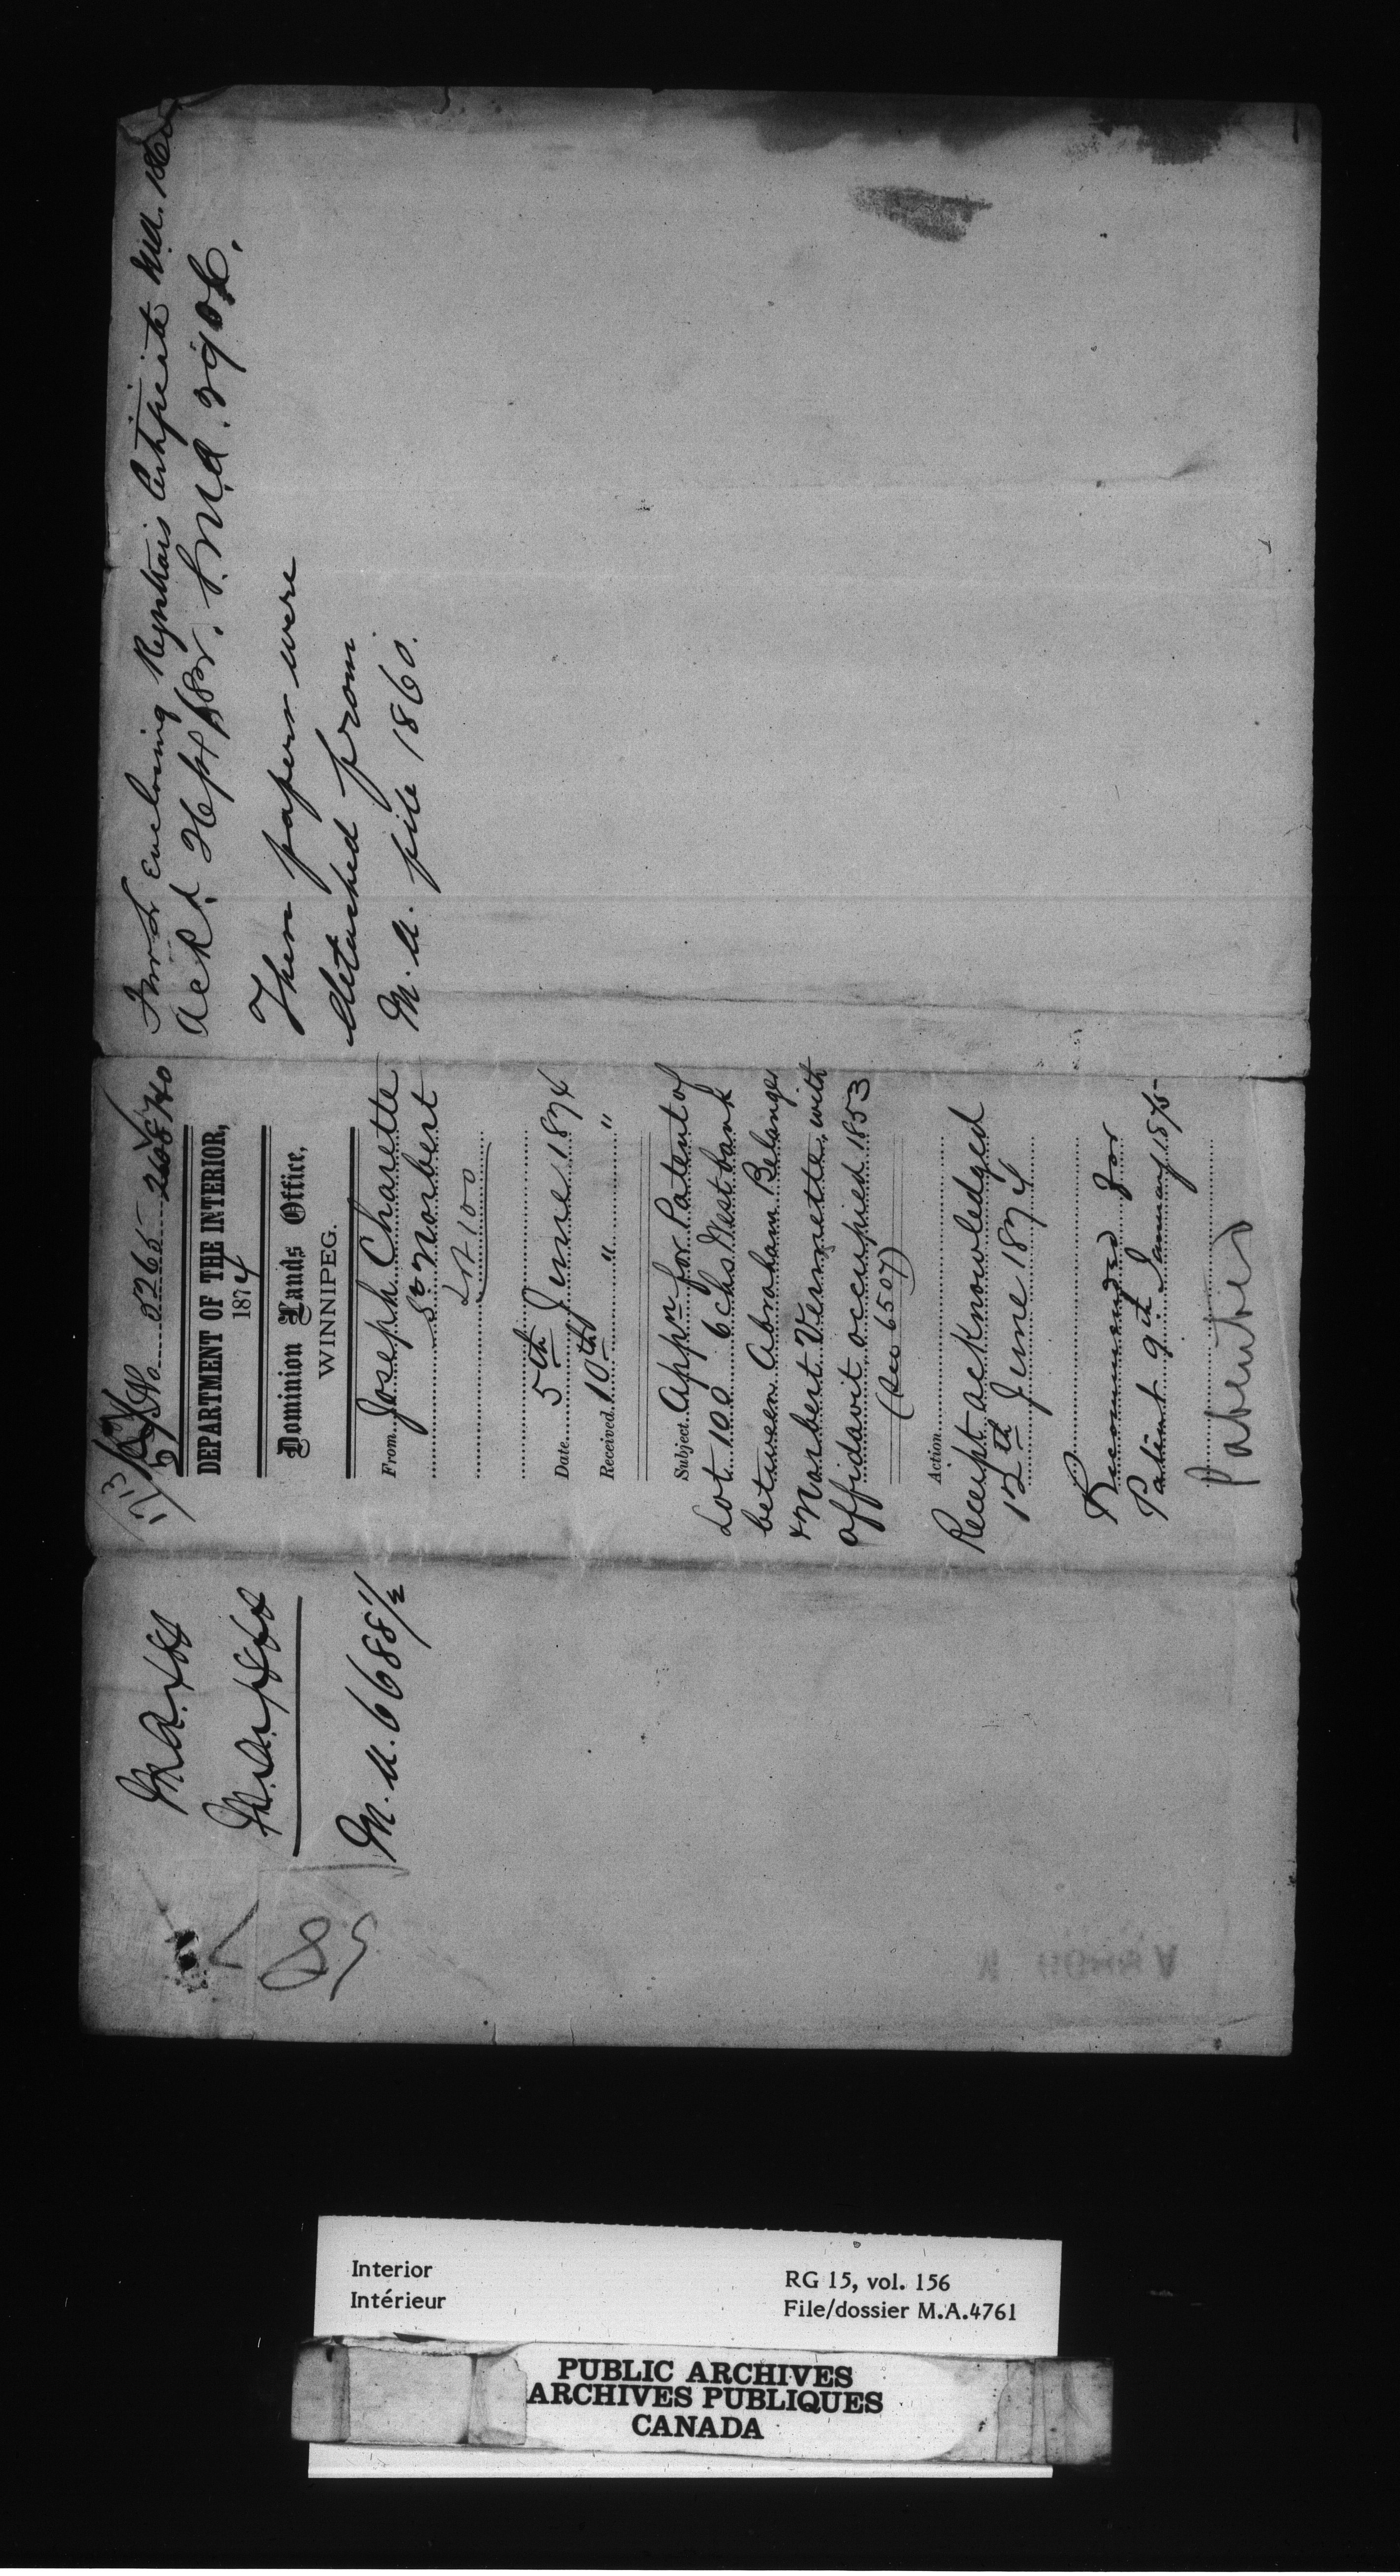 M.A. 6688 1/2
85
No 5265
DEPARTMENT OF THE INTERIOR,
1874
Dominion Lands Office,
WINNIPEG.
From Joseph Charette
St Norbert
Lot 100
Date 5th June 1874
Received 10th " "
Subject Appn for Patent of
Lot 100 6 chs West bank
between Abraham Belanger
& Norbert Vermette, with
affidavit occupied 1853
(See 6507)
Action
Receipt acknowledged
12th June 1874
Recommended for
Patent 9th January 1875
Patented
enclosing Registrars Certificate M.A. 1860
These papers were
detached from
M.A. file 1860.
Interior
Intérieur
RG 15, vol. 156
File/dossier M.A.4761
PUBLIC ARCHIVES
ARCHIVES PUBLIQUES
CANADA